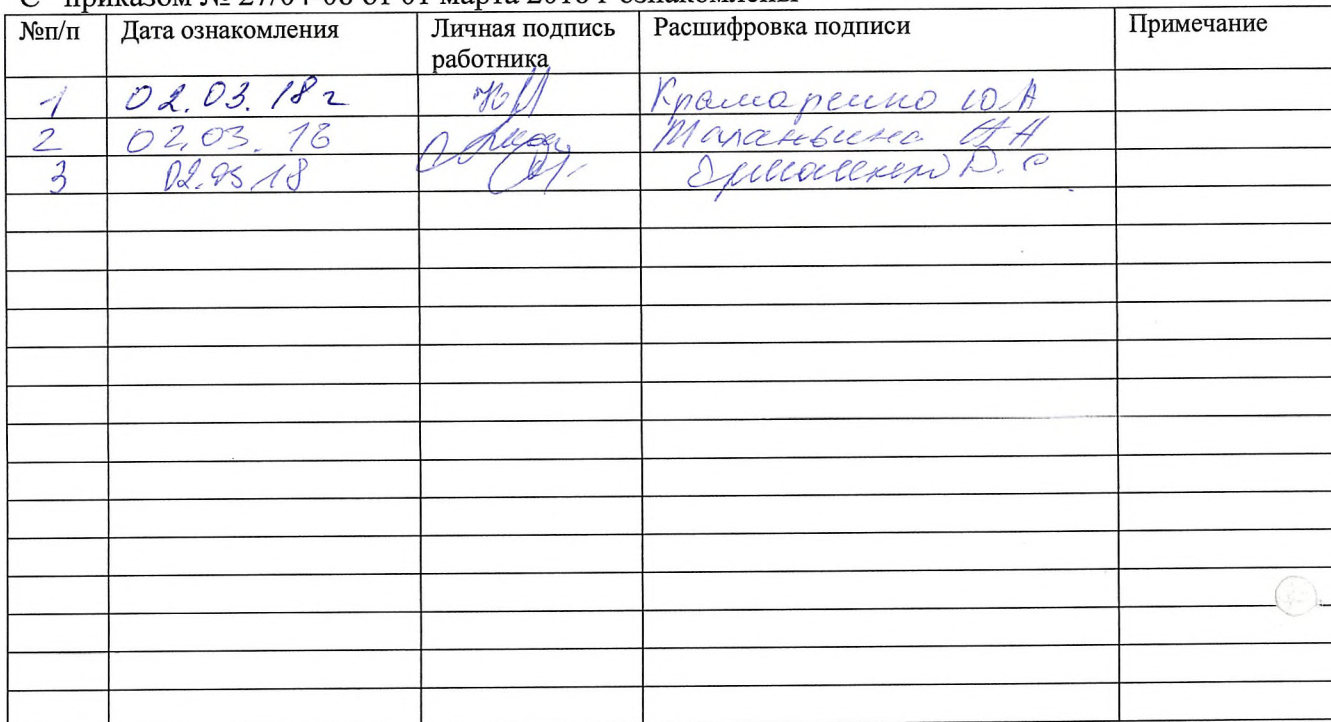 С приказом № 27/04-06 от 01 марта 2018 г ознакомлены
№п/п Дата ознакомления Личная подпись работника Расшифровка подписи Примечание
1 02.03.18г Крамаренко Ю.А
2 02.03.18 Маланьина
3 02.03.18 Ермашенко Д.С